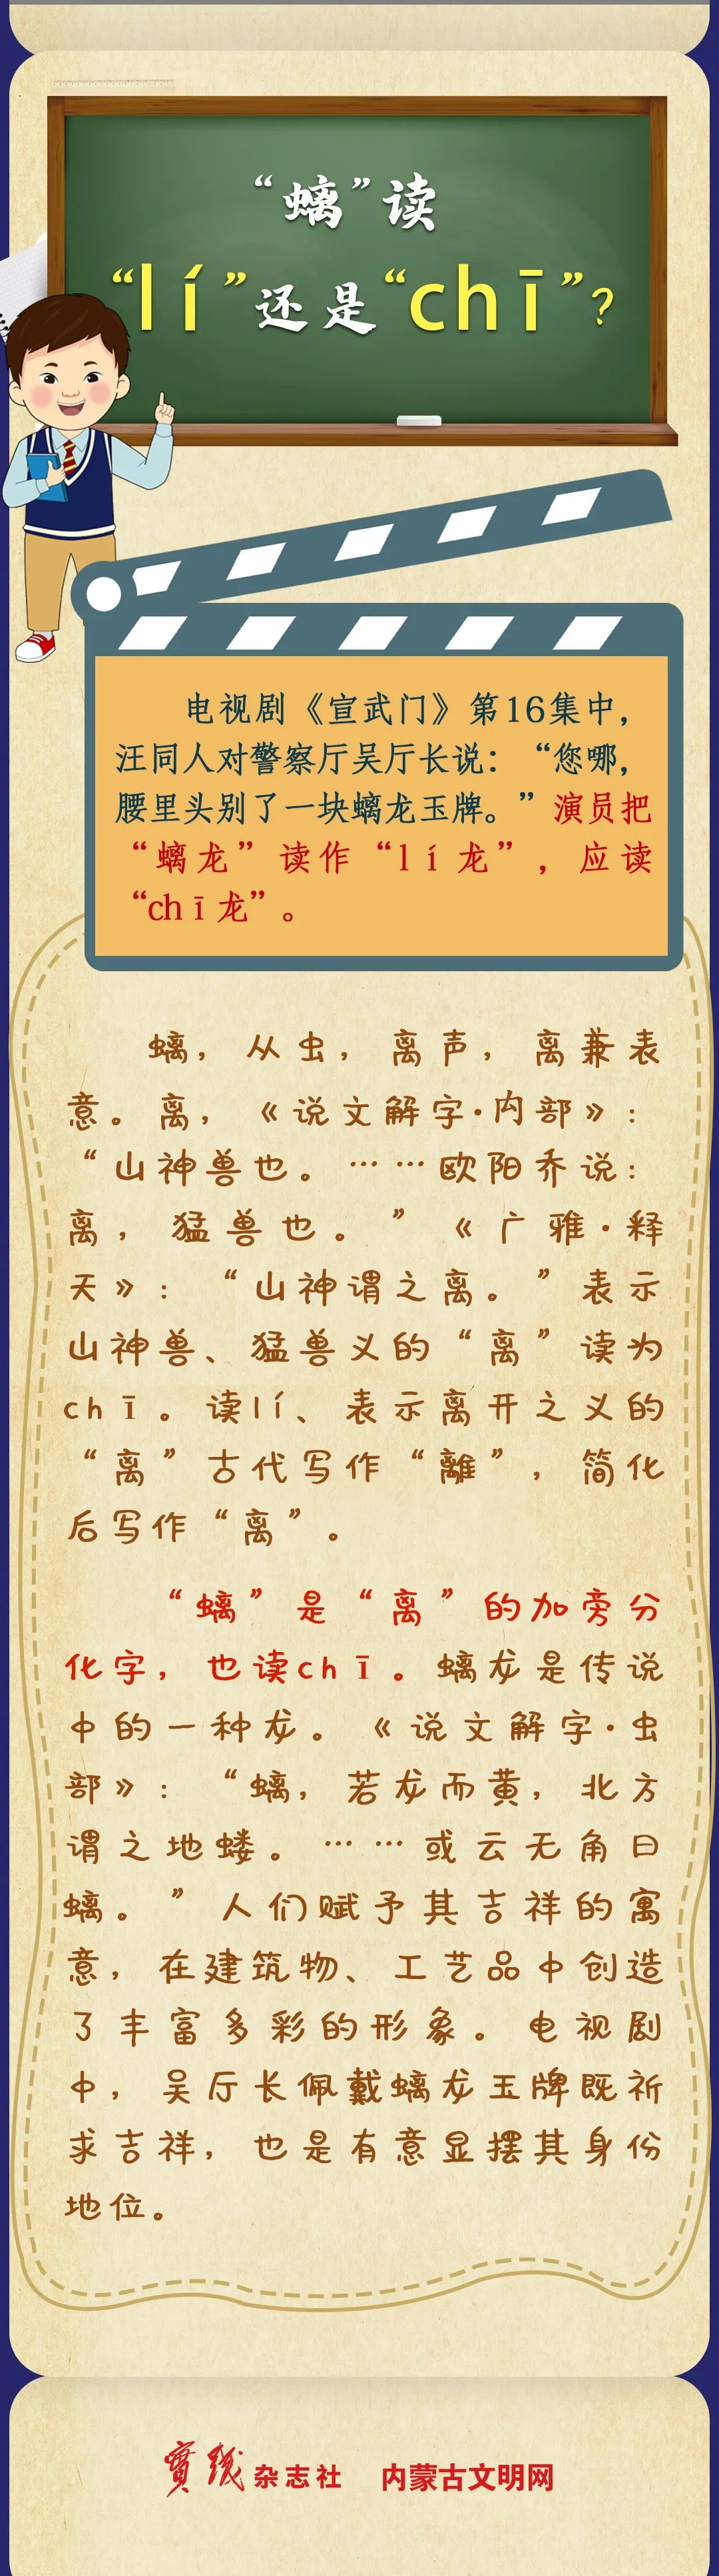 “螭”读
“lí”还是“chī”?
电视剧《宣武门》第16集中,
汪同人对警察厅吴厅长说：“您哪,
腰里头别了一块螭龙玉牌。”演员把
“螭龙”读作“lí龙”，应读
“chī龙”。
螭，从虫，离声，离兼表
意。离，《说文解字·禸部》：
“山神兽也。……欧阳乔说：
离，猛兽也。”《广雅·释
天》：“山神谓之离。”表示
山神兽、猛兽义的“离”读为
chī。读lí、表示离开之义的
“离”古代写作“離”，简化
后写作“离”。
“螭”是“离”的加旁分
化字，也读chī。螭龙是传说
中的一种龙。《说文解字·虫
部》：“螭，若龙而黄，北方
谓之地蝼。……或云无角曰
螭。”人们赋予其吉祥的寓
意，在建筑物、工艺品中创造
了丰富多彩的形象。电视剧
中，吴厅长佩戴螭龙玉牌既祈
求吉祥，也是有意显摆其身份
地位。
實践杂志社 内蒙古文明网